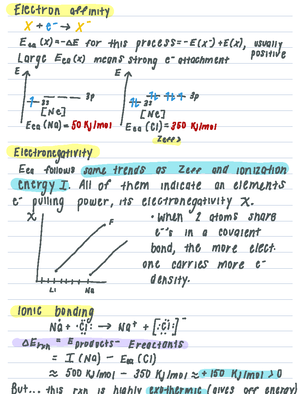 Electron affinity
X + e⁻ → X⁻
Eea (X) = -ΔE for this process = -E(X⁻) + E(X), usually positive
Large Eea (x) means strong e⁻ attachment
E E
3s 3p 3s 3p
[Ne] [Ne]
Eea (Na) = 50 KJ/mol Eea (Cl) = 350 KJ/mol
Zeff↑
Electronegativity
Eea follows same trends as Zeff and ionization
energy I. All of them indicate an elements
e⁻ pulling power, its electronegativity X.
X F
• When 2 atoms share
e⁻'s in a covalent
bond, the more elect.
one carries more e⁻
density.
Li Na
Ionic bonding
Na + Cl → Na⁺ + [Cl]⁻
ΔErxn = Eproducts - Ereactants
= I (Na) - Eea (Cl)
≈ 500 KJ/mol - 350 KJ/mol ≈ +150 KJ/mol > 0
But... this rxn is highly exothermic (gives off energy)